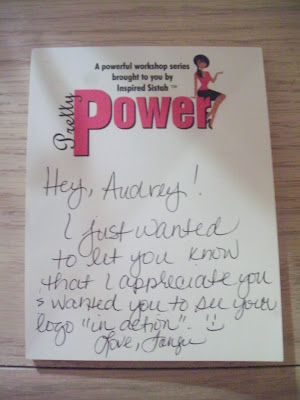 A powerful workshop series
brought to you by
Inspired Sistah ™
Pretty
Power
Hey, Audrey!
I just wanted
to let you know
that I appreciate you
& wanted you to see your
logo "in action". :)
Love,